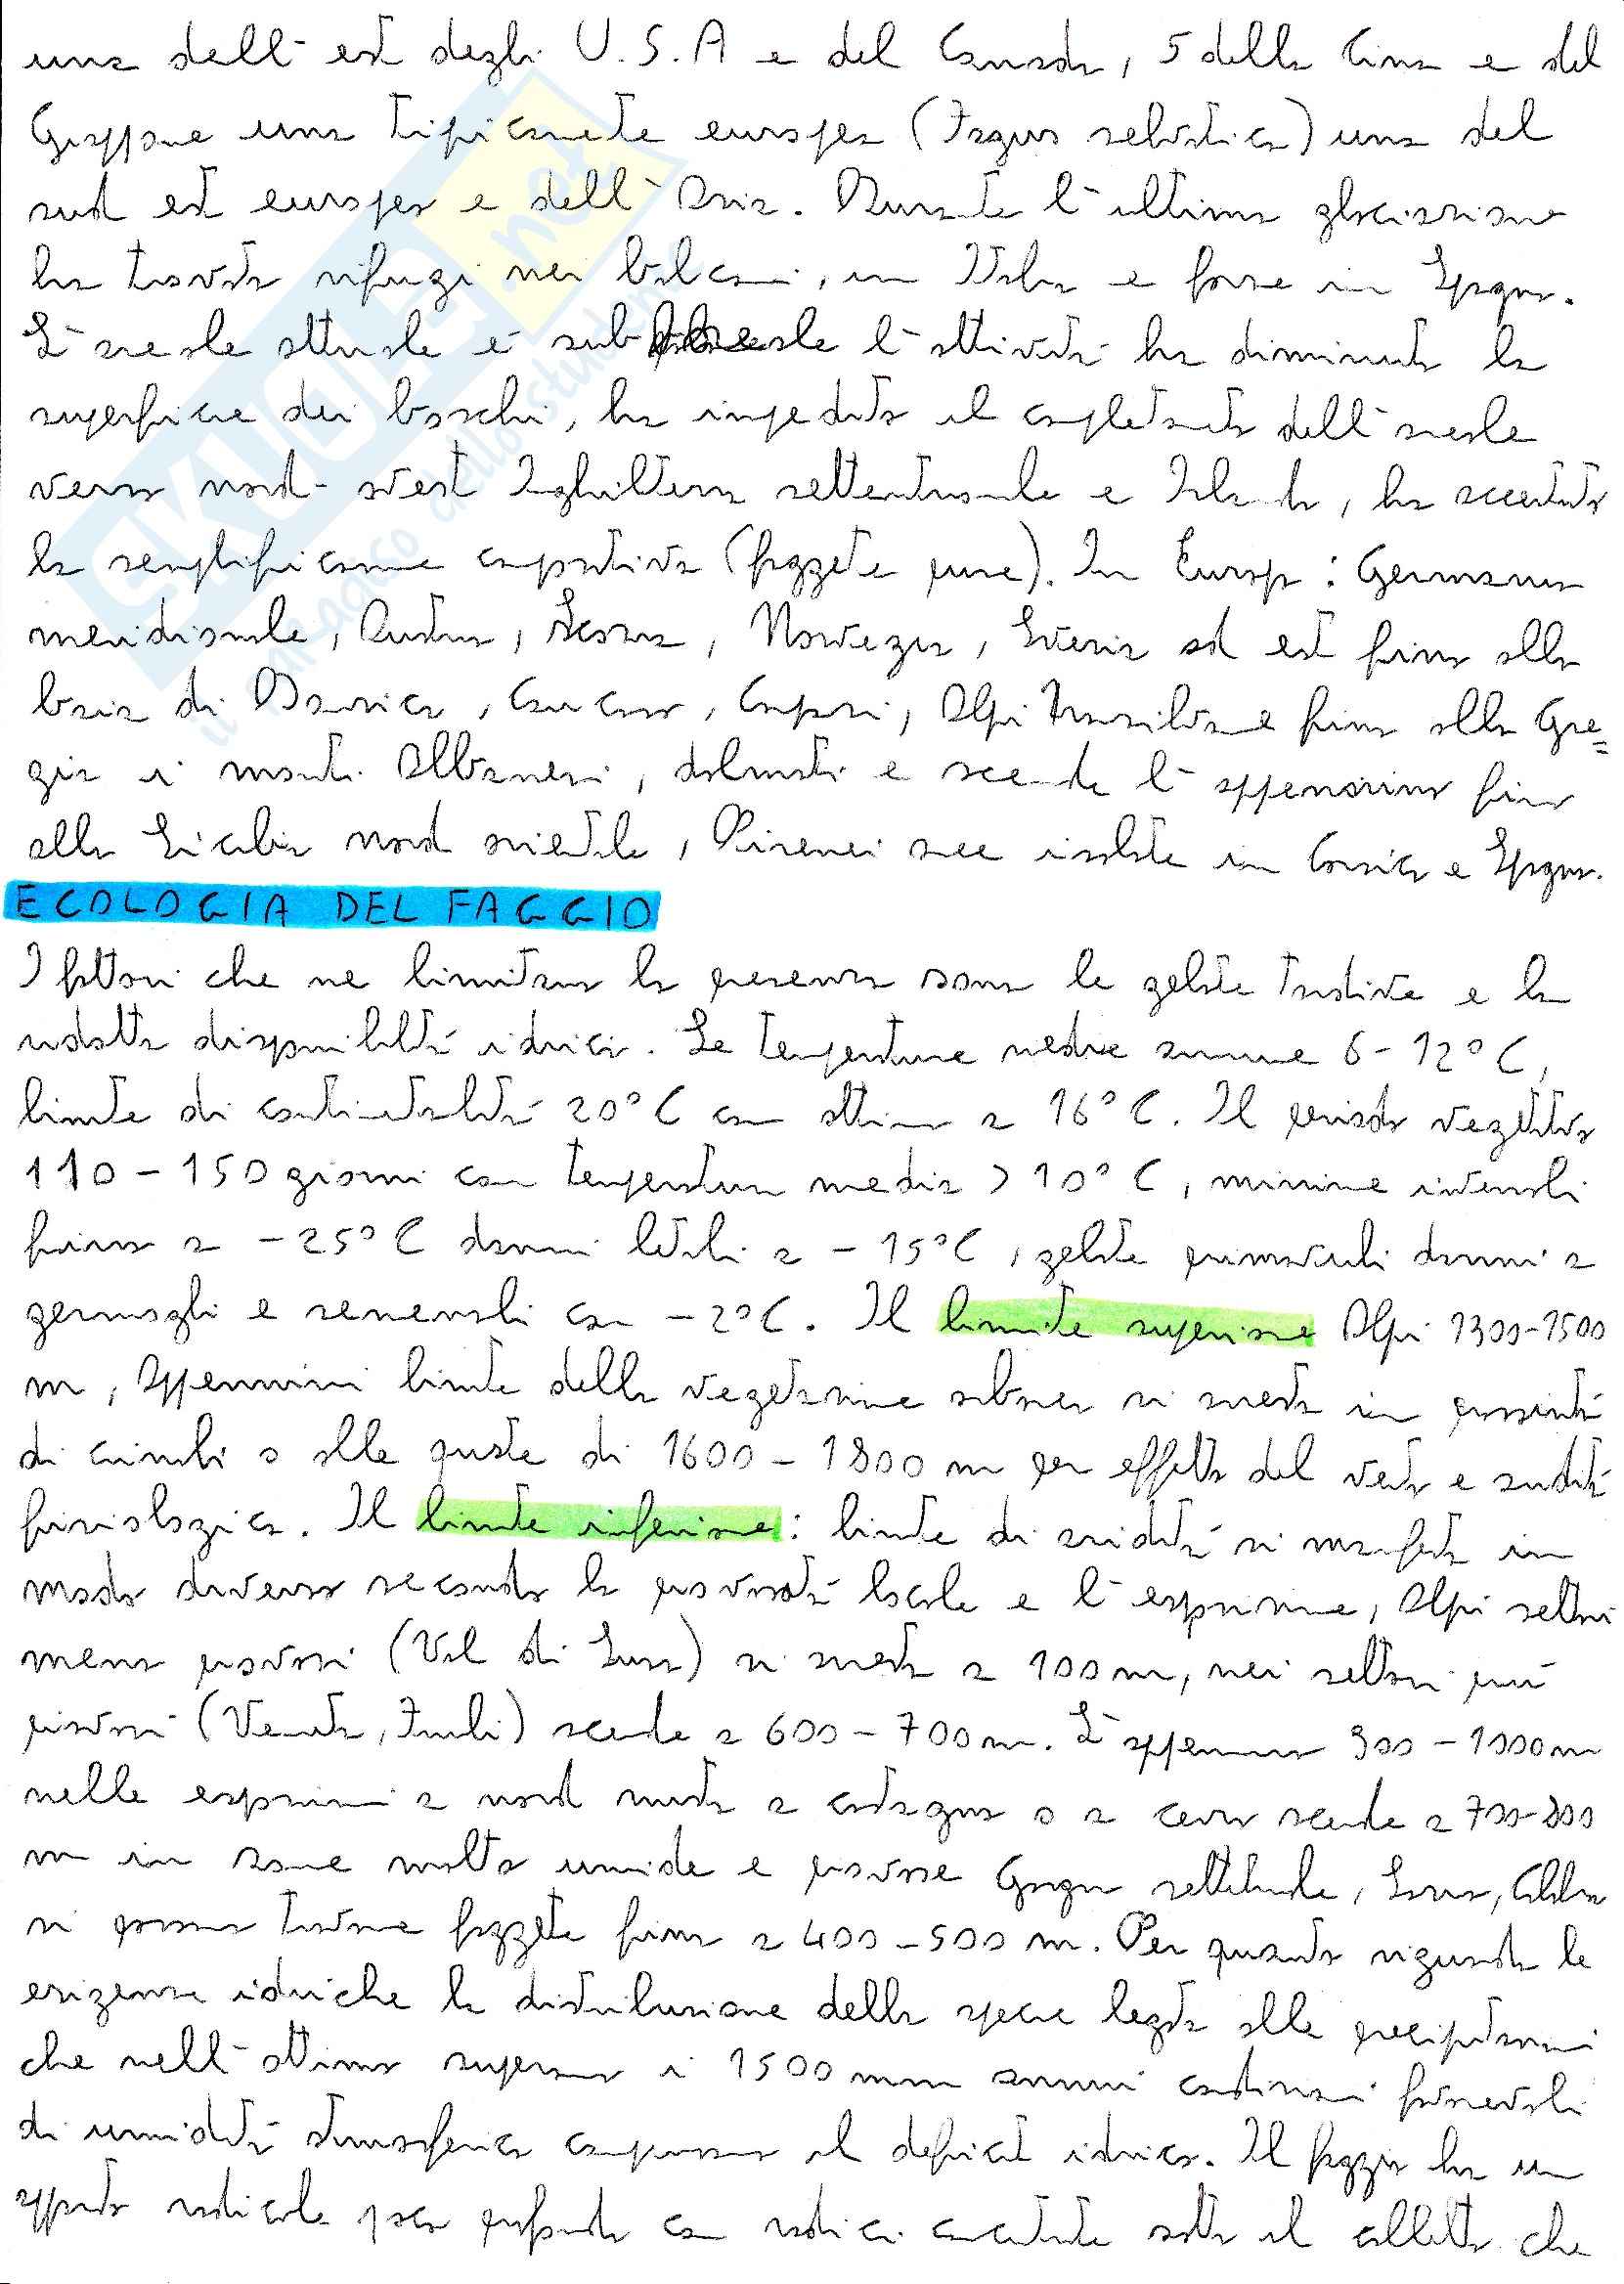 una dell'est degli U.S.A e del Canada, 5 della Cina e del
Giappone una tipicamente europea (Fagus selvatica) una del
sud est europeo e dell'Asia. Durante l'ultima glaciazione
ha trovato rifugi nei balcani, in Italia e forse in Spagna.
L'areale attuale è l'attività ha diminuito la
superficie dei boschi, ha impedito il completamento dell'areale
verso nord-ovest Inghilterra settentrionale e Irlanda, ha accentuato
la semplificazione compositiva (faggete pure). In Europa: Germania
meridionale, Austria, Scozia, Norvegia, Svezia ad est fino alla
di Danzica, Caucaso, Carpazi, Alpi Transilvane fino alla Gre=
gia i monti Albanesi, dalmati e scende l'appennino fino
alla Sicilia nord orientale, Pirenei aree isolate in Corsica e Spagna.
ECOLOGIA DEL FAGGIO
I fattori che ne limitano la presenza sono le gelate tardive e la
ridotta disponibilità idrica. Le temperature medie annue 6-12°C,
limite di continentalità 20°C con ottimo a 16°C. Il periodo vegetativo
110-150 giorni con temperatura media > 10°C, minime invernali
fino a -25°C danni letali a -15°C, gelate primaverili danni a
germogli e semenzali con -2°C. Il limite superiore Alpi 1300-1500
m, Appennini limite della vegetazione arborea si arresta in prossimità
di crinali o alle quote di 1600-1800 m per effetto del vento e aridità
fisiologica. Il limite inferiore: limite di aridità si manifesta in
modo diverso secondo la piovosità locale e l'esposizione, Alpi settori
meno piovosi (Val di Susa) si arresta a 100m, nei settori più
piovosi (Veneto, Friuli) scende a 600-700m. L'appennino 900-1000m
nelle esposizioni a nord misto a castagno o a cerro scende a 700-800
m in zone molto umide e piovose Gargano settentrionale,
si possono trovare faggete fino a 400-500 m. Per quanto riguarda le
esigenze idriche la distribuzione della specie legata alle precipitazioni
che nell'ottimo superano i 1500 mm annui condizioni favorevoli
di umidità atmosferica compensano il deficit idrico. Il faggio ha un
apparato radicale poco profondo con radici concentrate sotto il colletto che